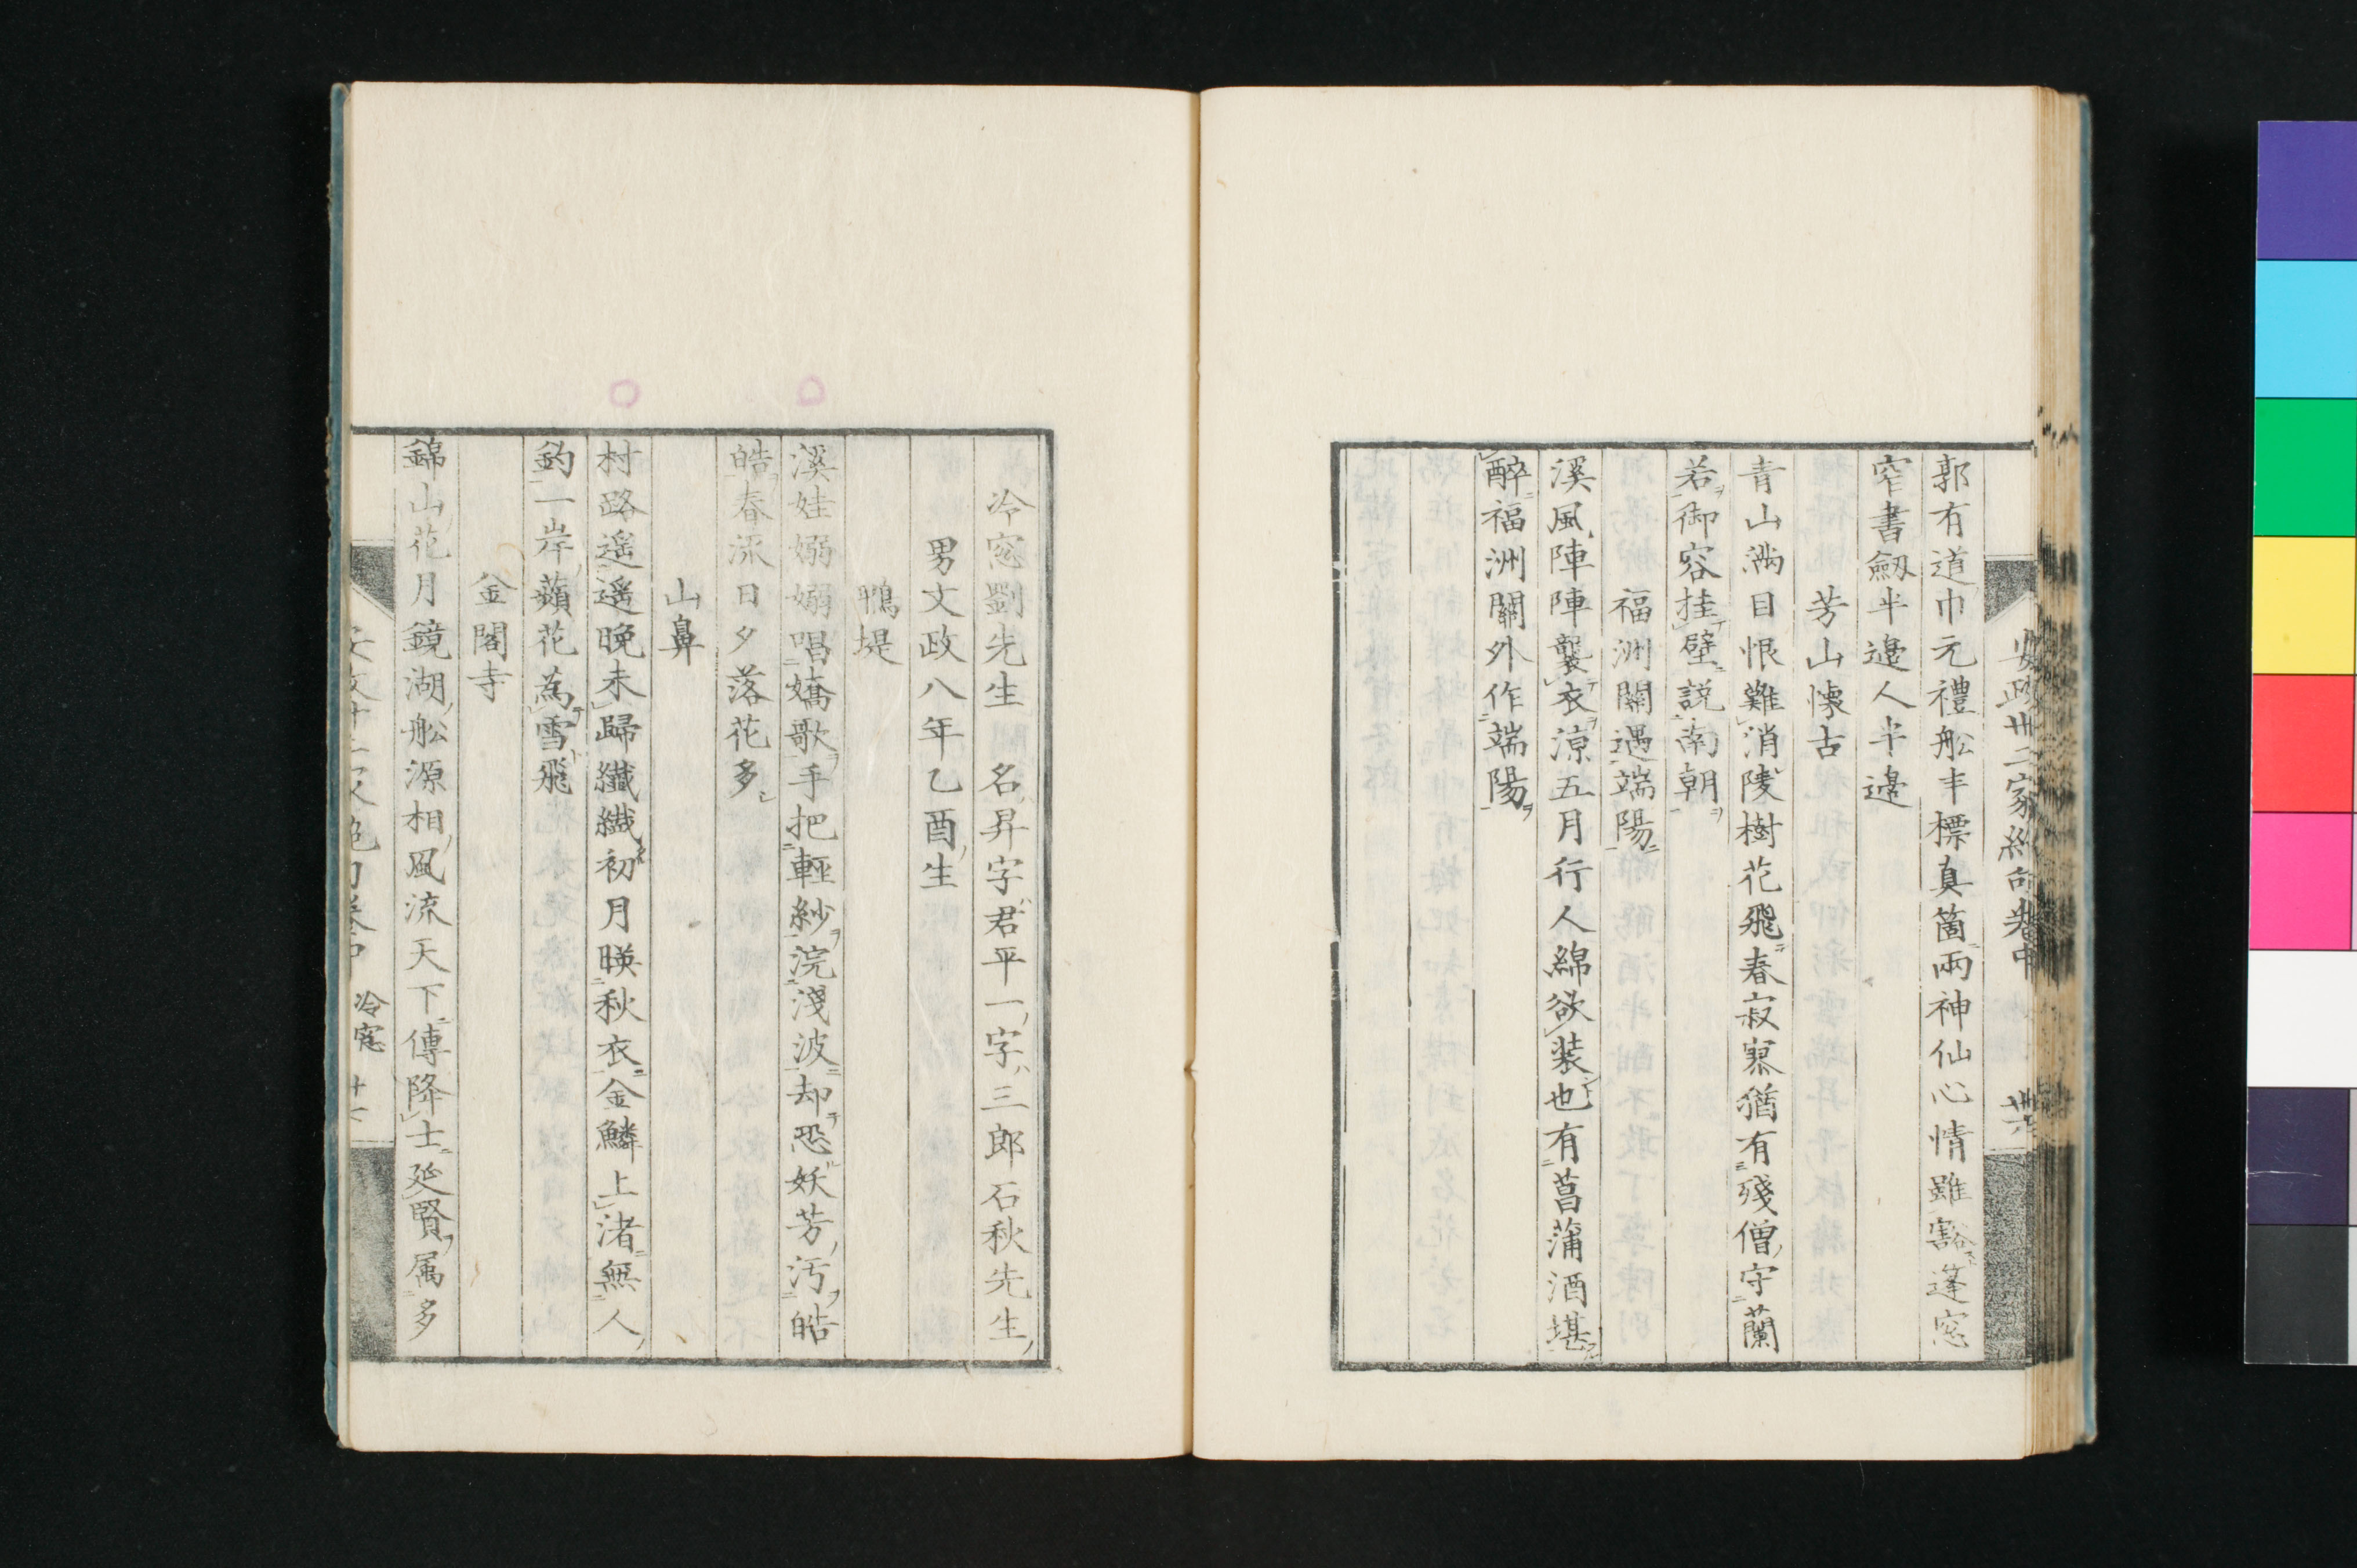 安政卅二家絶句卷中 卅六
郭有道巾元禮舩丰標真箇兩神仙心情雖豁蓬窓
窄書劔半邉人半邉
芳山懐古
青山満目恨難消陵樹花飛春寂寞猶有殘僧守蘭
若御容挂壁説南朝
福洲關遇端陽
溪風陣陣襲衣涼五月行人綿欲装也有菖蒲酒堪
醉福洲關外作端陽
冷窓劉先生 名昇字君平一字三郎石秋先生
男文政八年乙酉生
鴨堤
溪娃嫋嫋唱嬌歌手把輕紗浣淺波却恐妖芳汚皓
皓春流日夕落花多
山鼻
村路遥遥晚未歸纎纎初月暎秋衣金鱗上渚無人
釣一岸蘋花為雪飛
金閣寺
錦山花月鏡湖舩源相風流天下傳降士延賢属多
冷窓